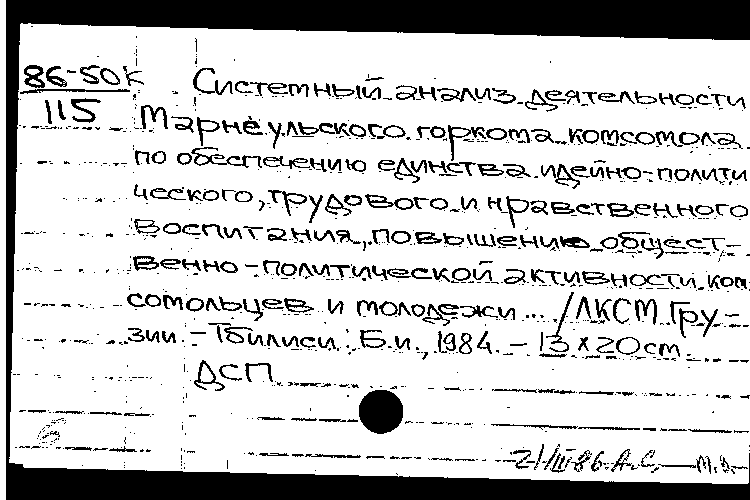 86-50к
115
Системный анализ деятельности
Марнеульского горкома комсомола
по обеспечению единства идейно-полити
ческого, трудового и нравственного
воспитания, повышению общест-
венно-политической активности ком
сомольцев и молодежи... /ЛКСМ Гру-
зии. - Тбилиси: Б.и., 1984. - 13 х 20 cm.
ДСП
б
21/III-86. А.С. — М.Д. -